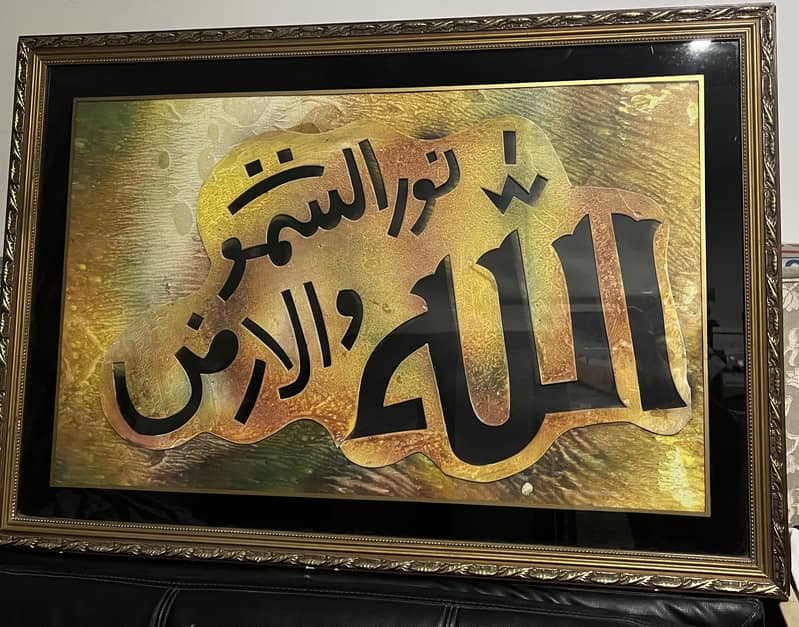 الله
نور السموت
والارض